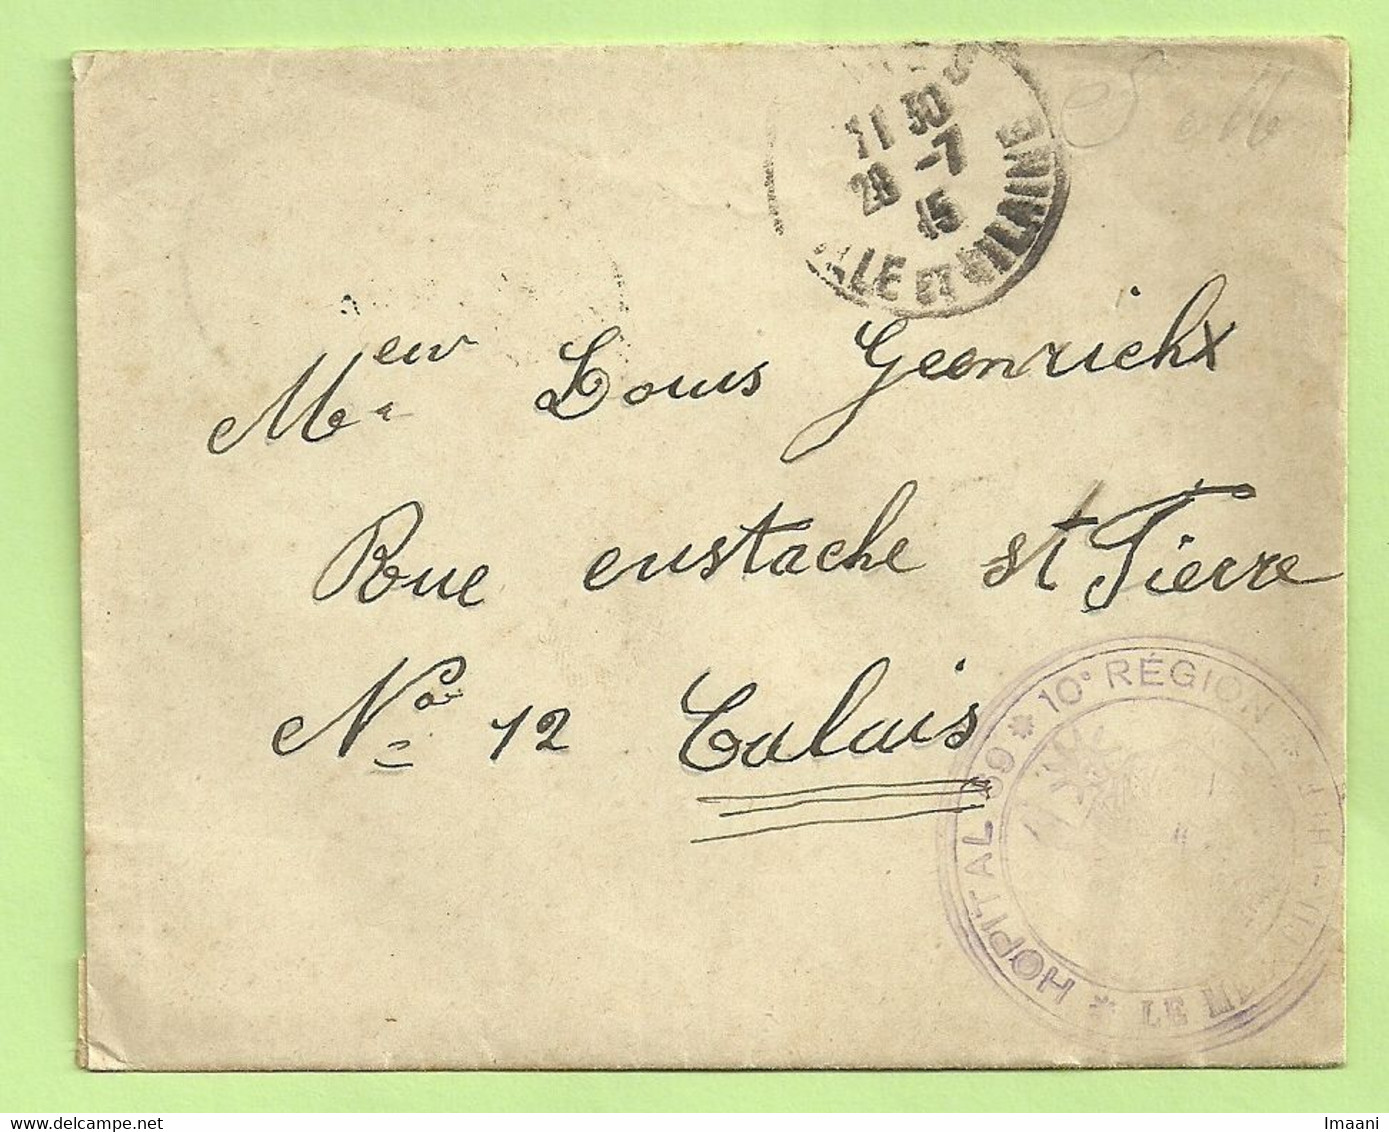 11 30
28 -7
15
ILLE ET VILAINE
Meur Louis Geenrichx
Rue eustache st Pierre
No 12 Calais
HOPITAL 69 * 10e RÉGION *
* LE ME
Imaani